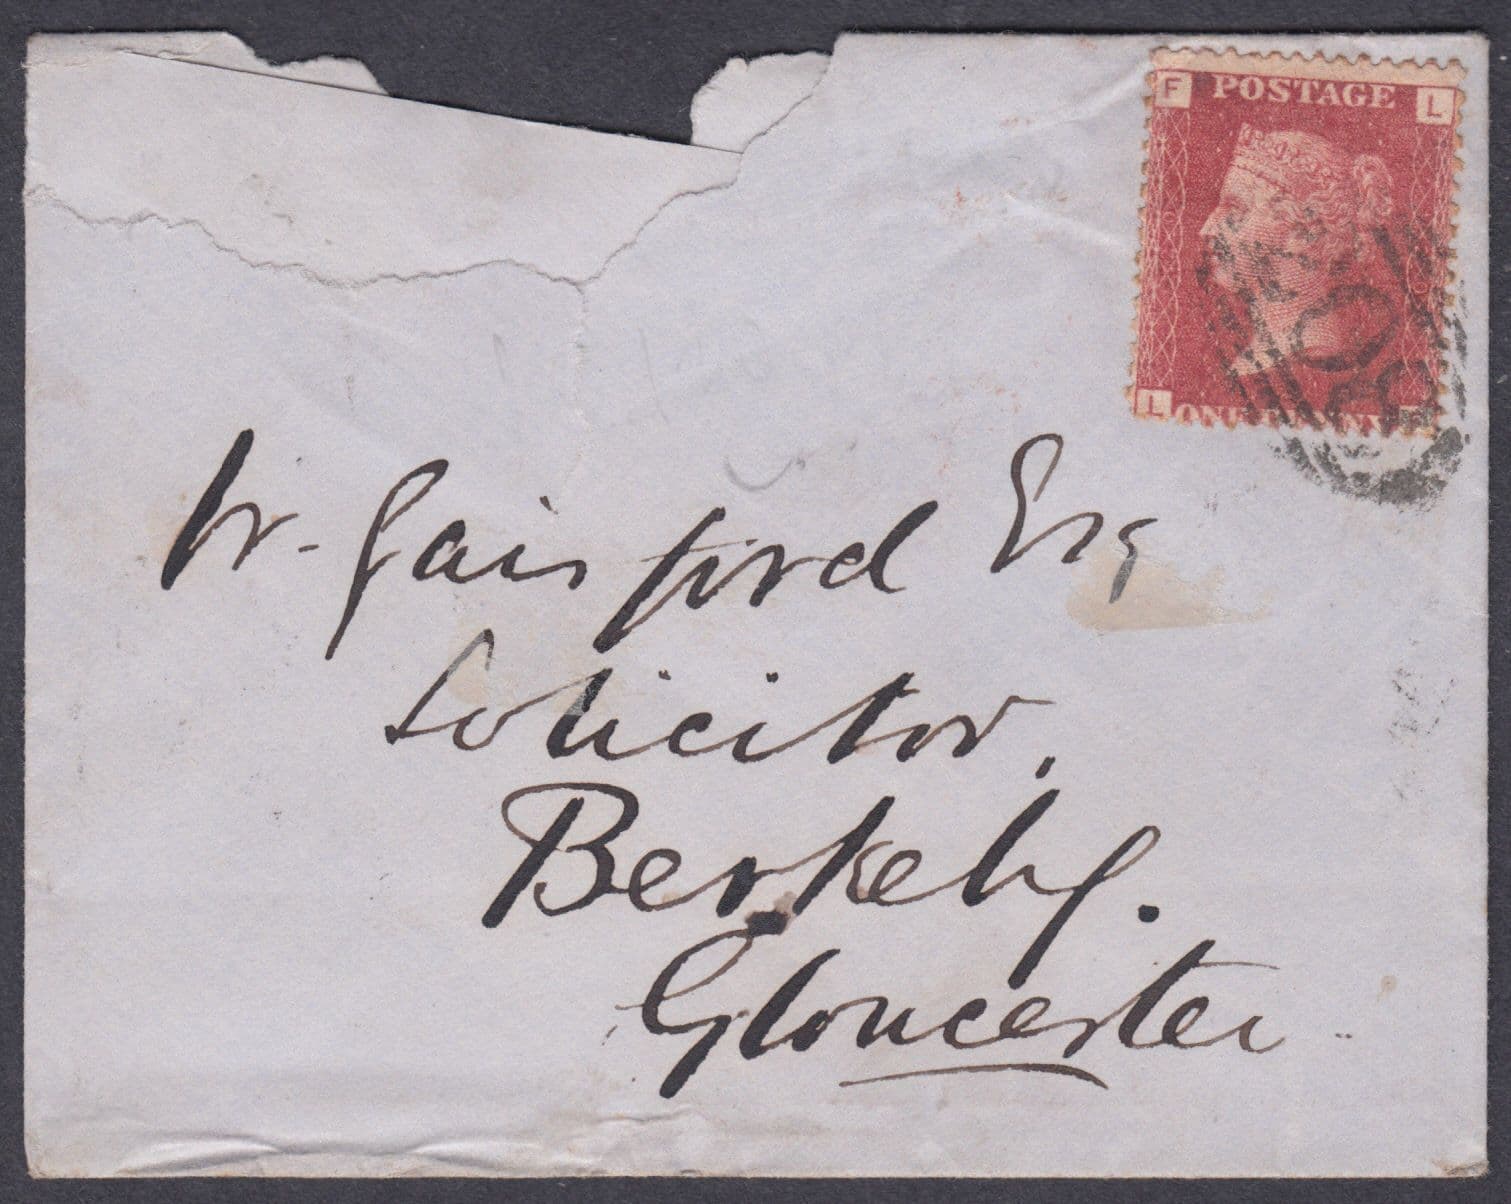 F POSTAGE L
L ONE PENNY F
W. Gaisford Esq
Solicitor.
Berkeley.
Gloucester